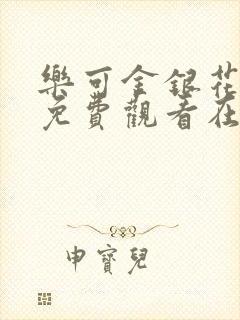 樂可金銀花
免費觀看在
申寶兒